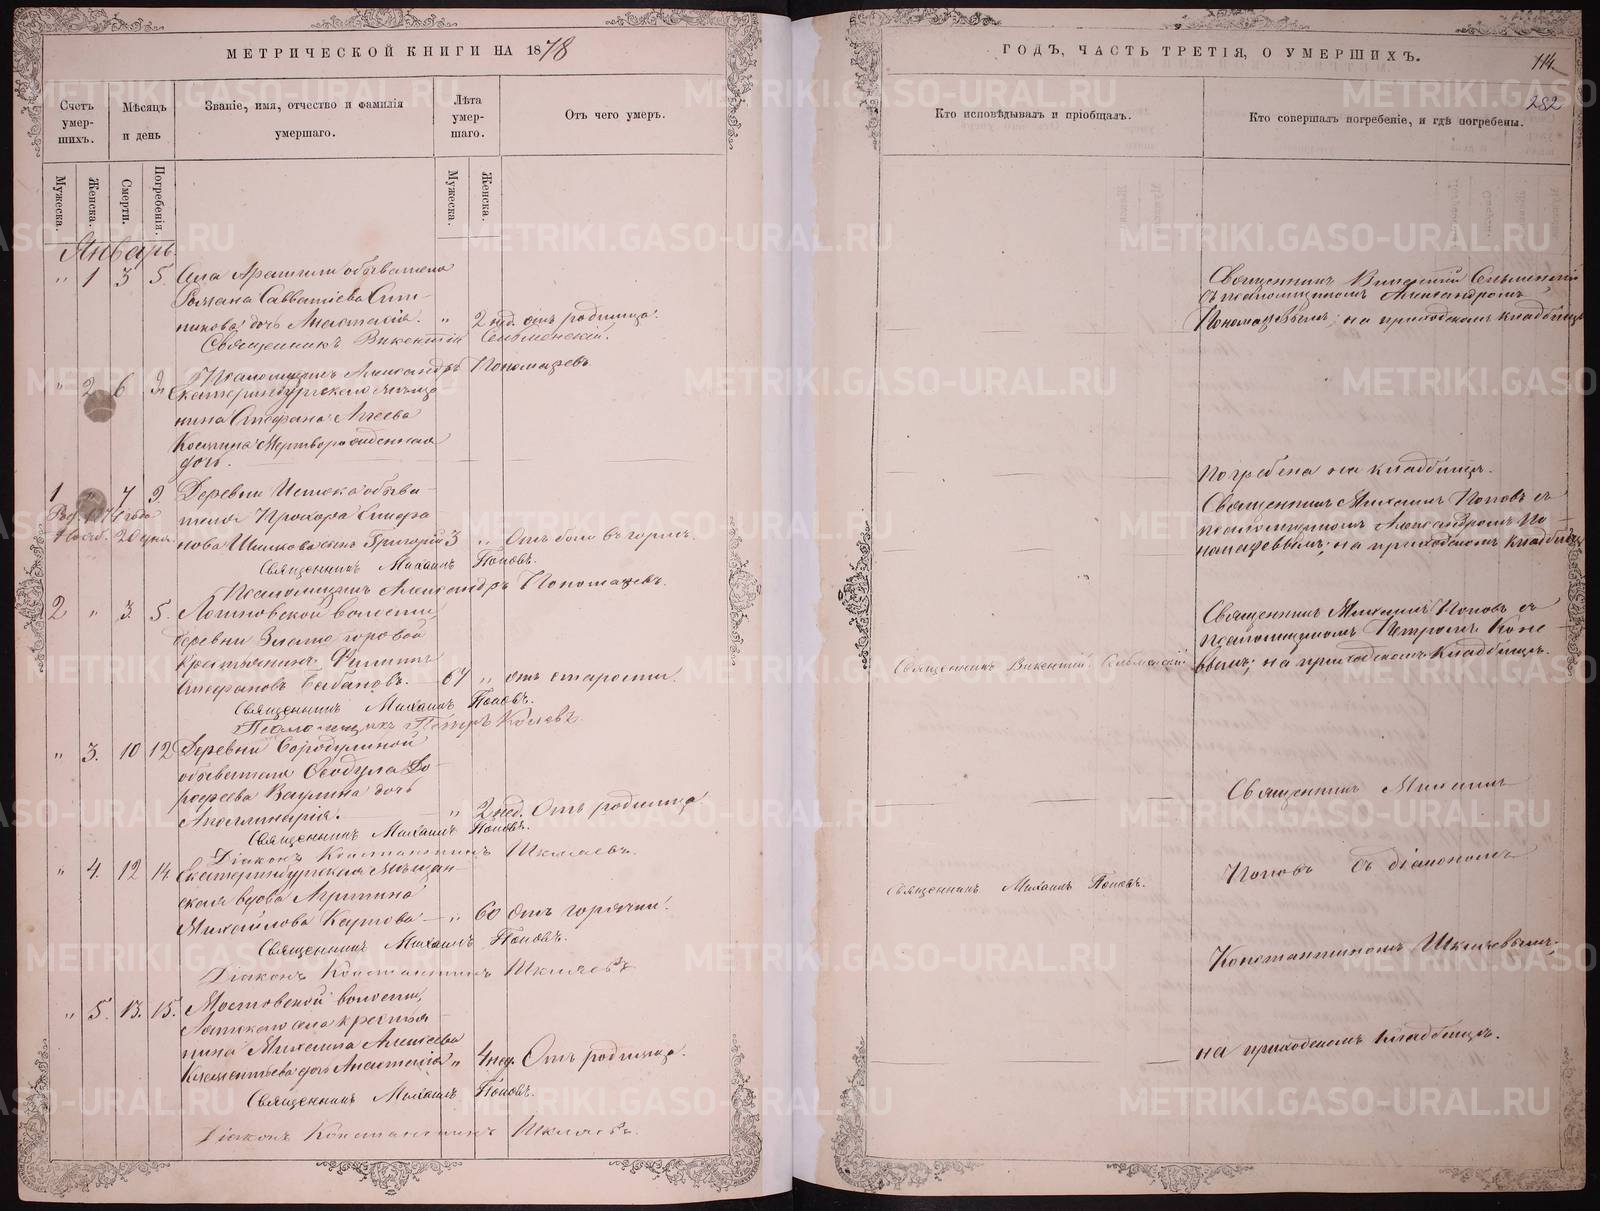 МЕТРИЧЕСКОЙ КНИГИ НА 1878
Счетъ умер-шихъ.
Мѣсяцъ и день
Званіе, имя, отчество и фамилія умершаго.
Лѣта умер-шаго.
Отъ чего умеръ.
Мужеска.
Женска.
Смерти.
Погребенія.
Мужеска.
Женска.
Январь.
" 1 3 5. Села Арамили обывателя
Романа Савватіева
дочь Анастасія. " 2 нед. отъ родимца.
Священникъ Викентій Сельменскій.
Псаломщикъ Александръ Пономаревъ.
" 2 6 Екатеринбургскаго мѣща
нина Стефана Агеева
Мертворожденная
дочь.
1 " 7 9. Деревни Истока обыва-
теля Прохора Стефа
нова сынъ Григорій 3 " Отъ боли въ горлѣ.
Священникъ Михаилъ Поповъ.
Псаломщикъ Александръ Пономаревъ.
2 " 3. 5. Логиновской волости,
деревни Златогоровой
крестьянинъ Филиппъ
Стефановъ 67 " отъ старости.
Священникъ Михаилъ Поповъ.
Псаломщикъ Петръ Коневъ.
" 3. 10 12 Деревни Бородулиной
обывателя Ѳеодула До
рофеева Ваулина дочь
Аполлинарія. " 2 нед. Отъ родимца.
Священникъ Михаилъ Поповъ.
Діаконъ Константинъ Шкляевъ.
" 4. 12 14 Екатеринбургская мѣщан-
ская вдова Агрипина
Михайлова Карпова " 60 отъ горячки.
Священникъ Михаилъ Поповъ.
Діаконъ Константинъ Шкляевъ
" 5. 13. 15. Мостовской волости,
села крестья
нина Михаила Алексеева
Клементьева дочь Анастасія " 4 нед. Отъ родимца.
Священникъ Михаилъ Поповъ.
Діаконъ Константинъ Шкляевъ.
ГОДЪ, ЧАСТЬ ТРЕТІЯ, О УМЕРШИХЪ.
114
282
Кто исповѣдывалъ и пріобщалъ.
Кто совершалъ погребеніе, и гдѣ погребены.
Священникъ Викентій Сельменскій
съ псаломщикомъ Александромъ
Пономаревымъ; на приходскомъ кладбищѣ
Погребена на кладбищѣ.
Священникъ Михаилъ Поповъ съ
псаломщикомъ Александромъ По
номаревымъ; на приходскомъ кладбищѣ
Священникъ Викентій Сельменскій
Священникъ Михаилъ Поповъ съ
псаломщикомъ Петромъ Коне
вымъ; на приходскомъ кладбищѣ.
Священникъ Михаилъ
Священникъ Михаилъ Поповъ.
Поповъ съ діакономъ
Константиномъ Шкляевымъ,
на приходскомъ кладбищѣ.
METRIKI.GASO-URAL.RU